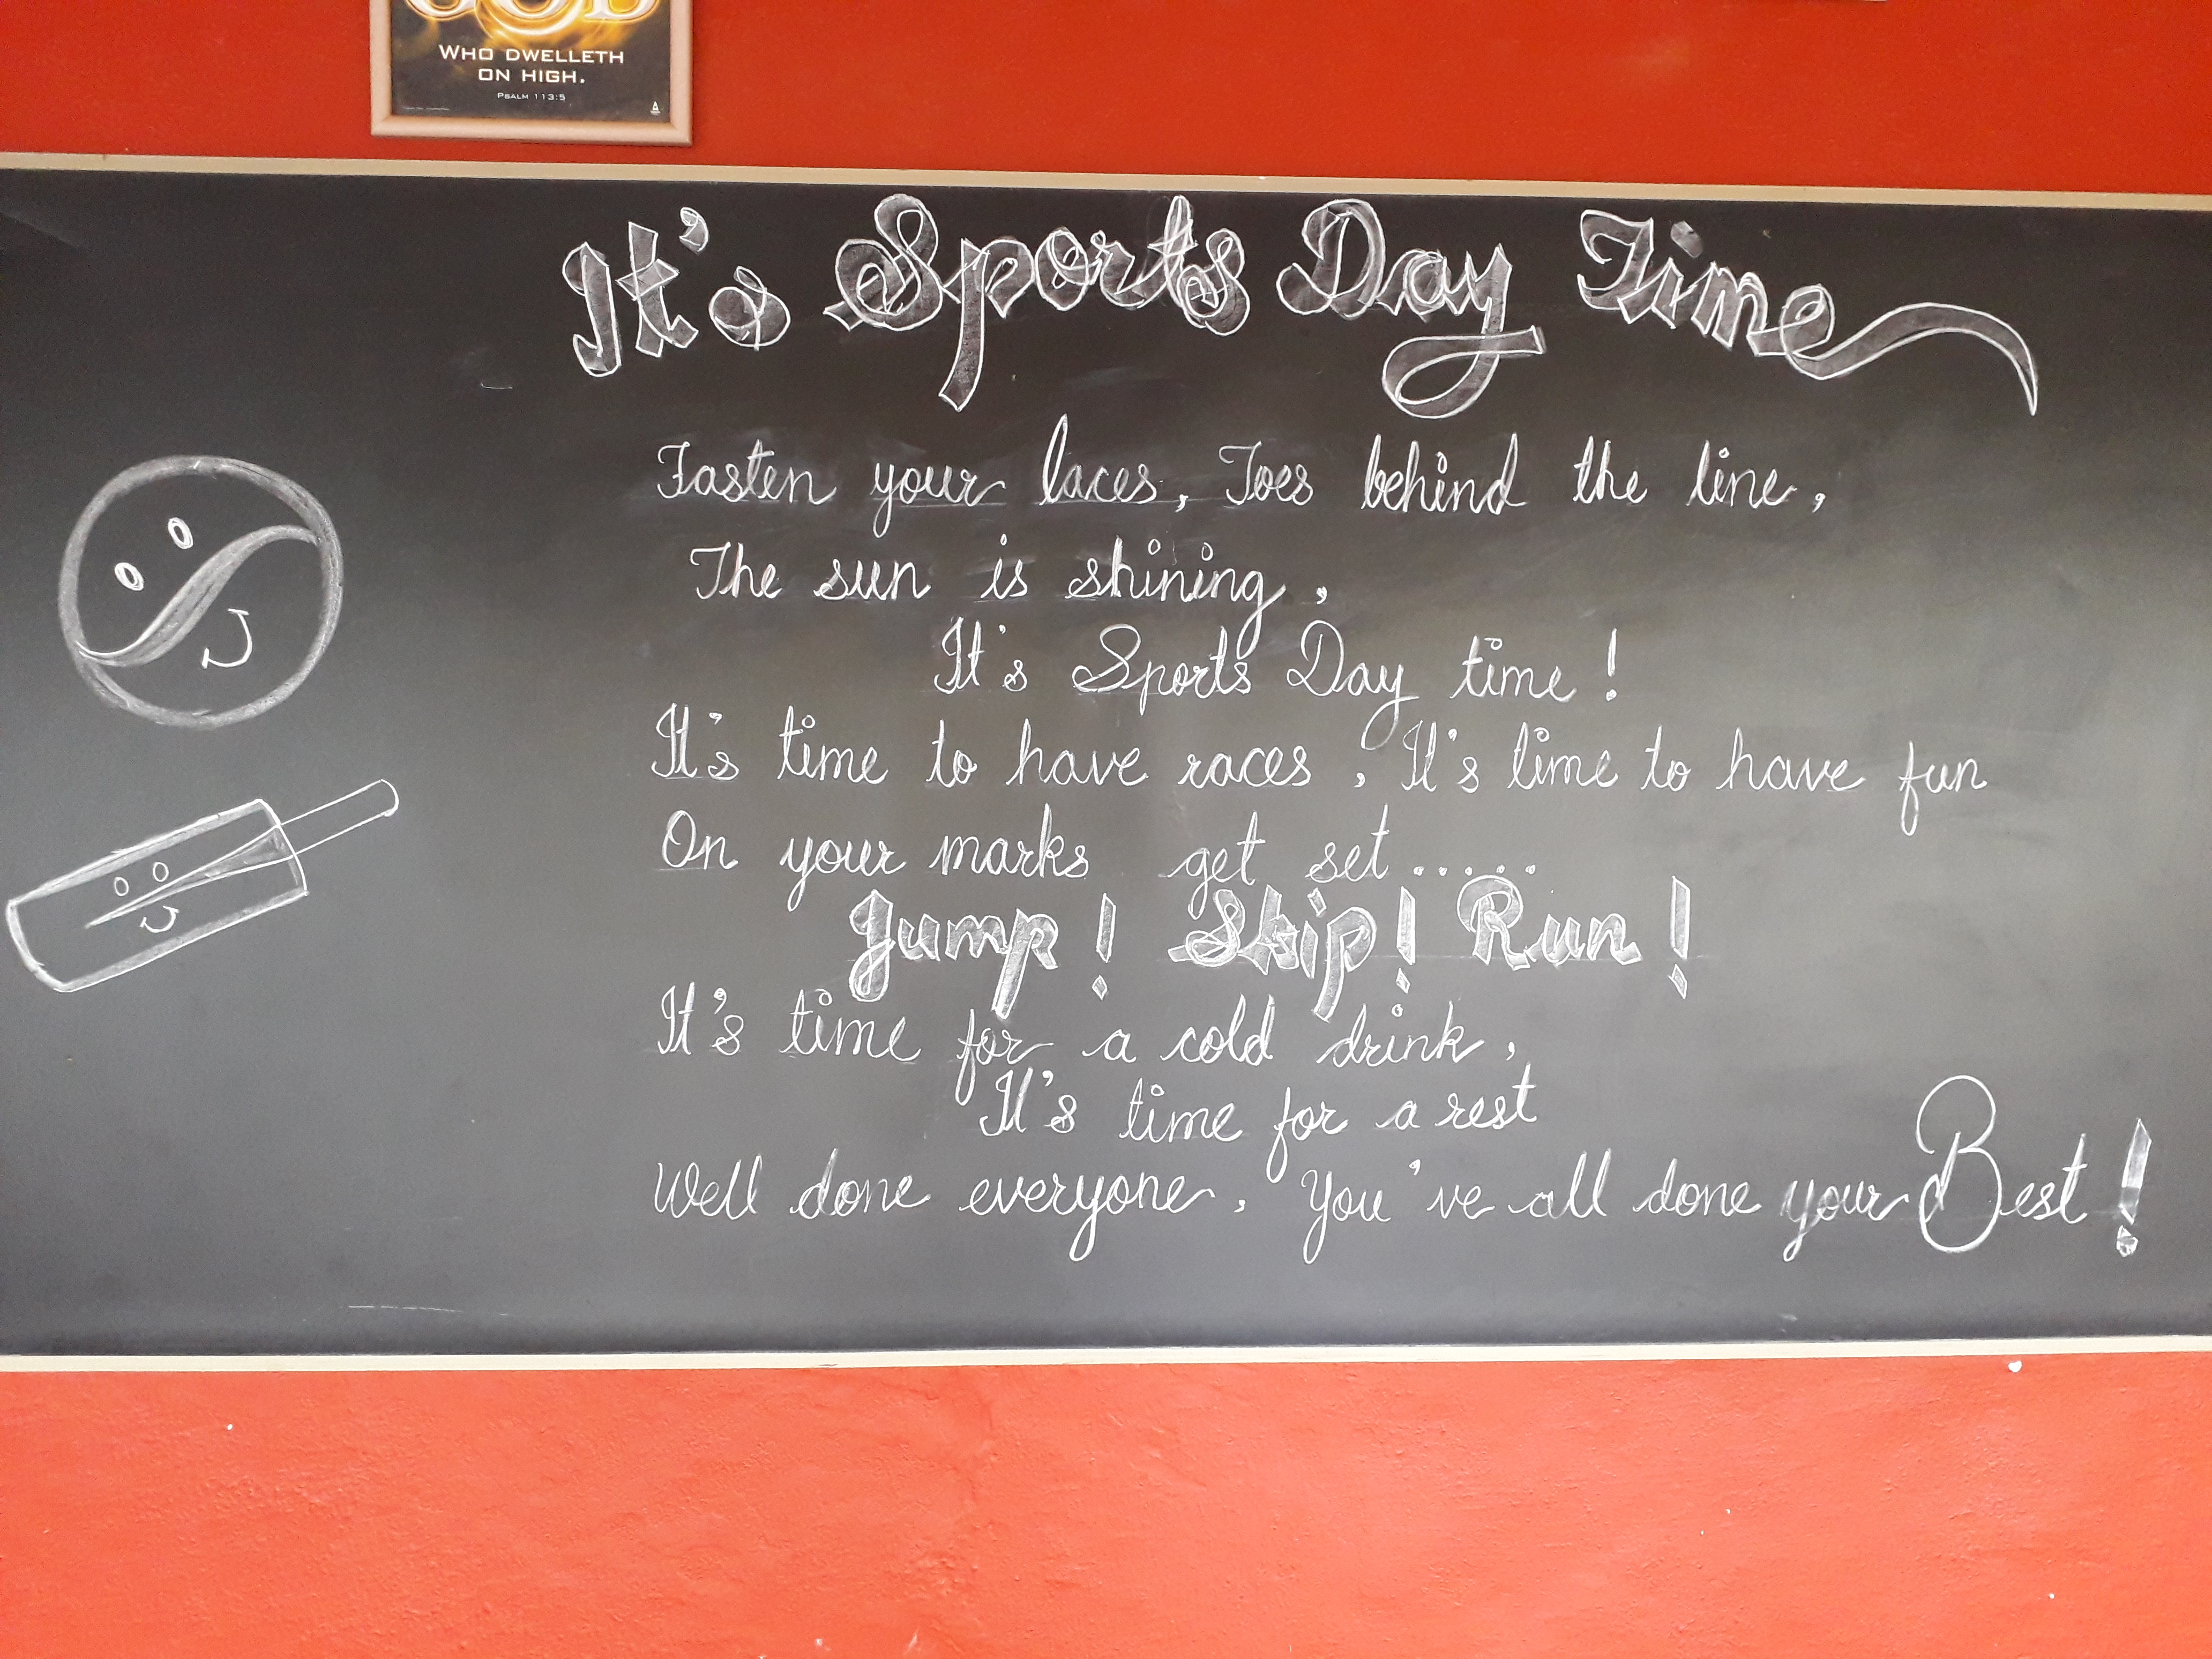 GOD
WHO DWELLETH
ON HIGH.
PSALM 113:5
It's Sports Day Time
Fasten your laces, Toes behind the line,
The sun is shining,
It's Sports Day time!
It's time to have races, It's time to have fun
On your marks get set......
Jump! Skip! Run!
It's time for a cold drink,
It's time for a rest
Well done everyone, You've all done your Best!